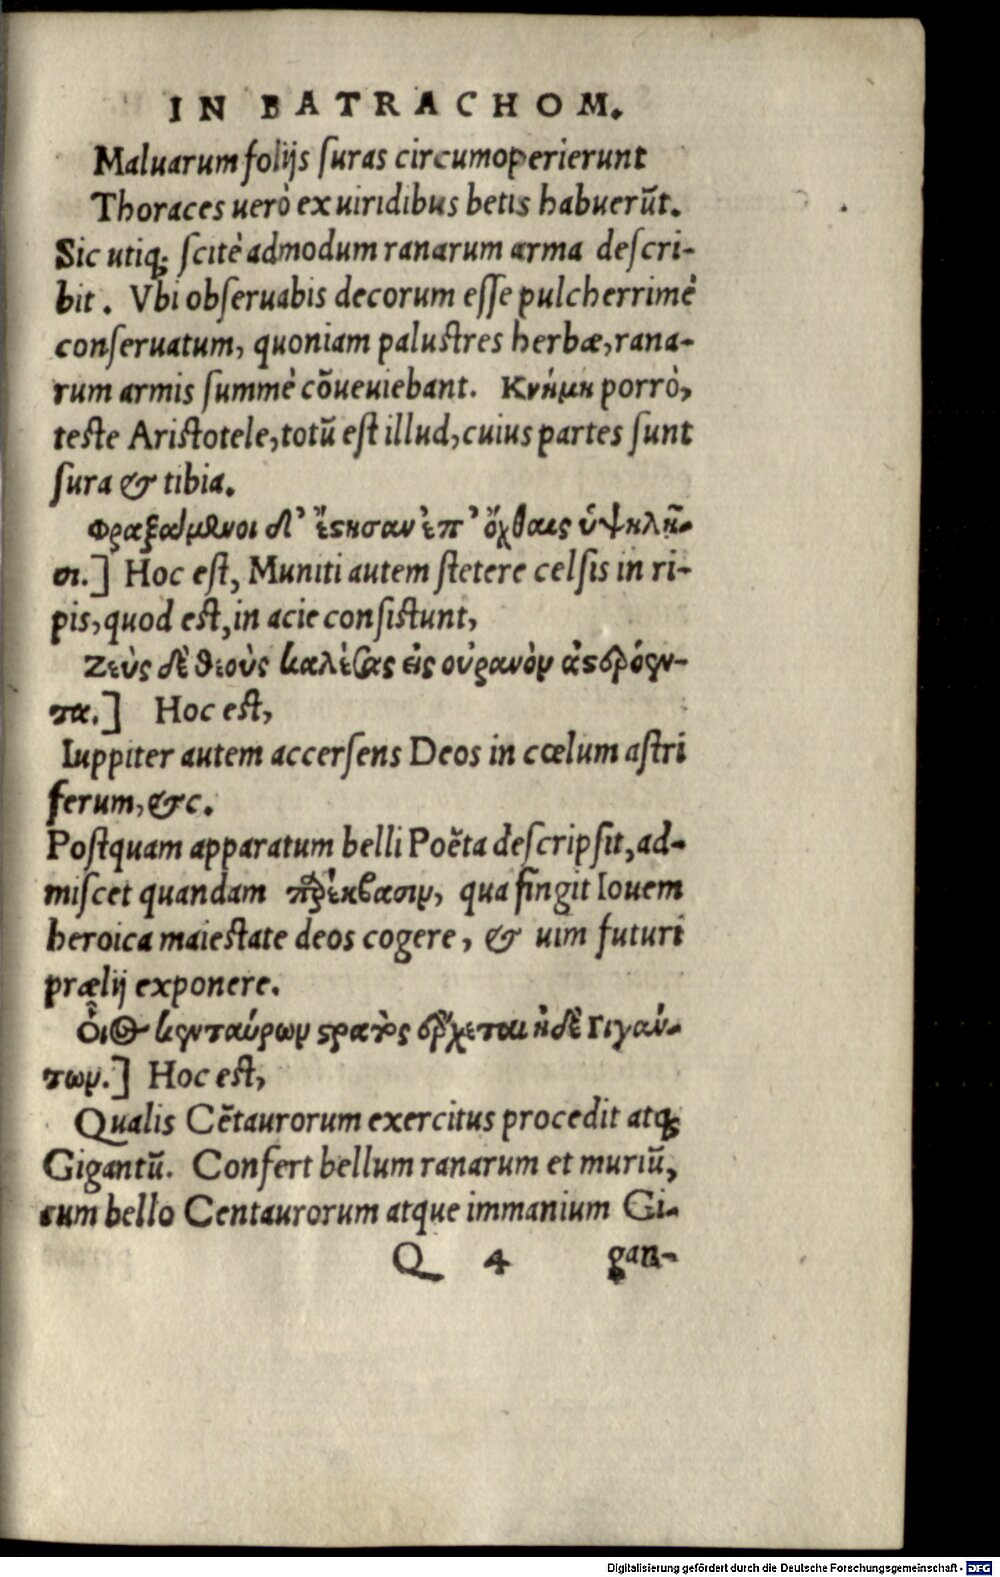 IN BATRACHOM.
Maluarum folijs ſuras circumoperierunt
Thoraces uerò ex uiridibus betis habuerũt.
Sic utiq; ſcitè admodum ranarum arma deſcri-
bit. Vbi obſeruabis decorum eſſe pulcherrimè
conſeruatum, quoniam paluſtres herbæ, rana-
rum armis ſummè cõueuiebant. Κνήμη porrò,
teſte Ariſtotele, totũ eſt illud, cuius partes ſunt
ſura & tibia.
Φραξάμενοι δ' ἔϛησαν ἐπ' ὄχθαις ὑψηλῆ-
σι.] Hoc eſt, Muniti autem ſtetere celſis in ri-
pis, quod eſt, in acie conſiſtunt,
Ζεὺς δὲ θεοὺς καλέσας εἰς οὐρανὸν ἀϛερόεν-
τα.] Hoc eſt,
Iuppiter autem accerſens Deos in cœlum aſtri
ferum, &c.
Poſtquam apparatum belli Poẽta deſcripſit, ad-
miſcet quandam παρέκβασιν, qua fingit Iouem
heroica maieſtate deos cogere, & uim futuri
prælij exponere.
Οἷος κενταύρων ϛρατὸς ἔρχεται ἠδὲ Γιγάν-
των.] Hoc eſt,
Qualis Cẽtaurorum exercitus procedit atq;
Gigantũ. Confert bellum ranarum et muriũ,
cum bello Centaurorum atque immanium Gi-
Q 4 gan-
Digitalisierung gefördert durch die Deutsche Forschungsgemeinschaft - DFG